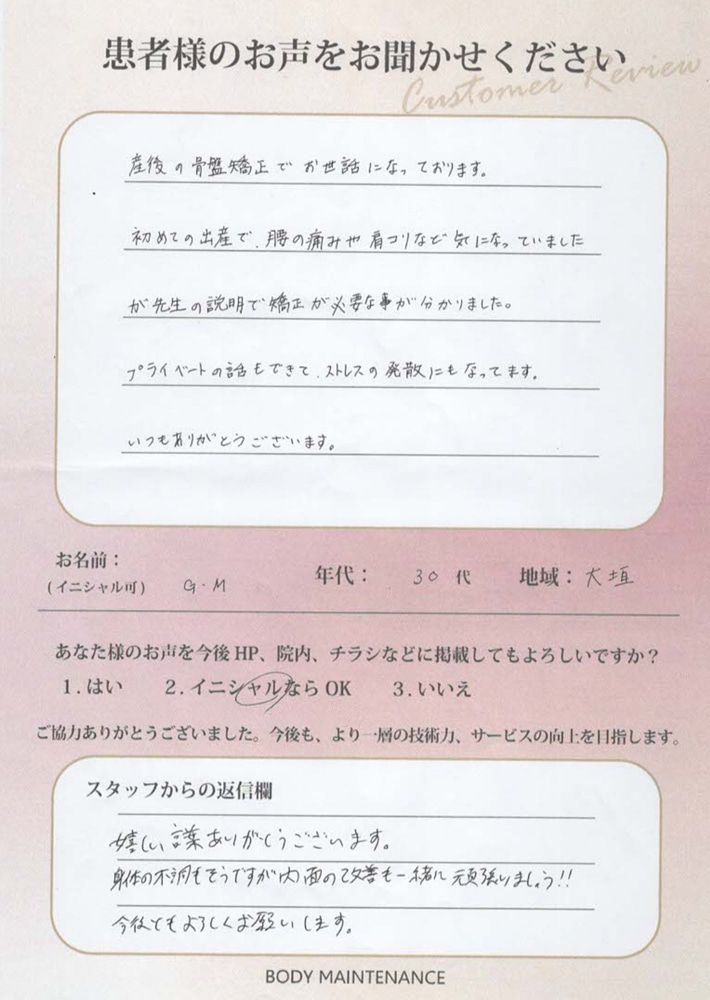 患者様のお声をお聞かせください
Customer Review
産後の骨盤矯正でお世話になっております。
初めての出産で、腰の痛みや肩コリなど気になっていました
が先生の説明で矯正が必要な事が分かりました。
プライベートの話もできて、ストレスの発散にもなってます。
いつもありがとうございます。
お名前：
(イニシャル可) G・M 年代： 30代 地域：大垣
あなた様のお声を今後HP、院内、チラシなどに掲載してもよろしいですか？
1.はい 2.イニシャルならOK 3.いいえ
ご協力ありがとうございました。今後も、より一層の技術力、サービスの向上を目指します。
スタッフからの返信欄
嬉しい言葉ありがとうございます。
身体の不調もそうですが内面の改善も一緒に頑張りましょう!!
今後ともよろしくお願いします。
BODY MAINTENANCE